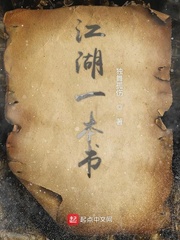 江湖一本书
著
起点中文网